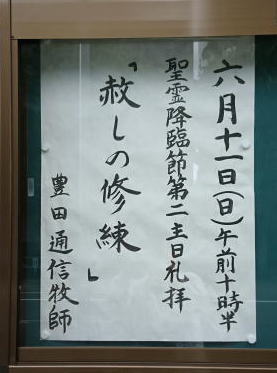 六月十一日(日)午前十時半
聖霊降臨節第二主日礼拝
「赦しの修練」
豊田通信牧師